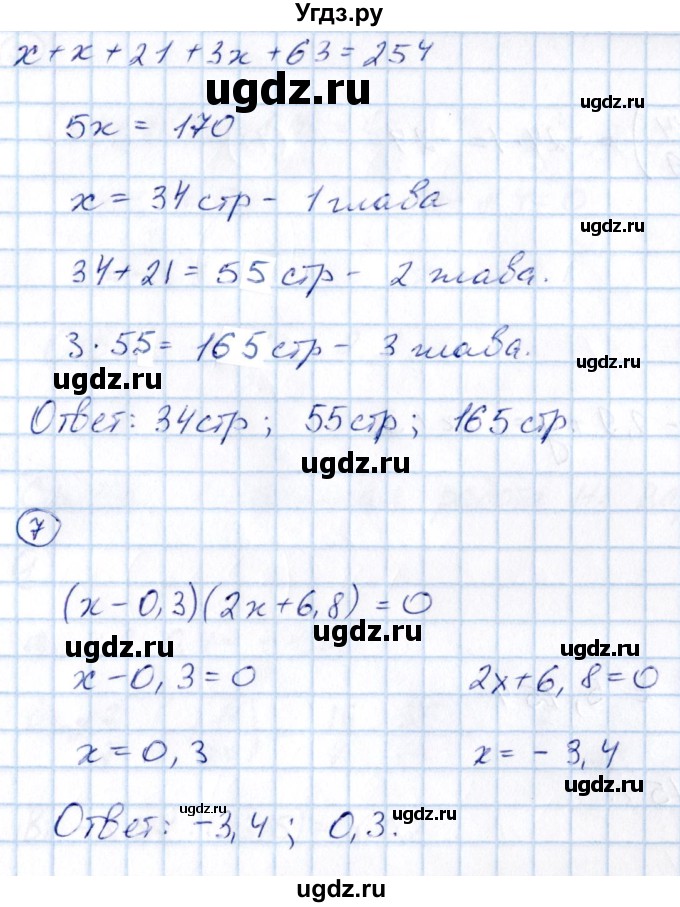 Угдз.ру
x + x + 21 + 3x + 63 = 254
ugdz.ru
ugdz.ru
5x = 170
x = 34 стр - 1 глава
ugdz.ru
34 + 21 = 55 стр - 2 глава.
3 · 55 = 165 стр - 3 глава.
ugdz.ru
ugdz.ru
Ответ: 34 стр; 55 стр; 165 стр.
ugdz.ru
ugdz.ru
7
(x - 0,3)(2x + 6,8) = 0
ugdz.ru
ugdz.ru
ugdz.ru
x - 0,3 = 0 2x + 6,8 = 0
x = 0,3 x = - 3,4
ugdz.ru
Ответ: -3,4; 0,3.
ugdz.ru
ugdz.ru
ugdz.ru
ugdz.ru